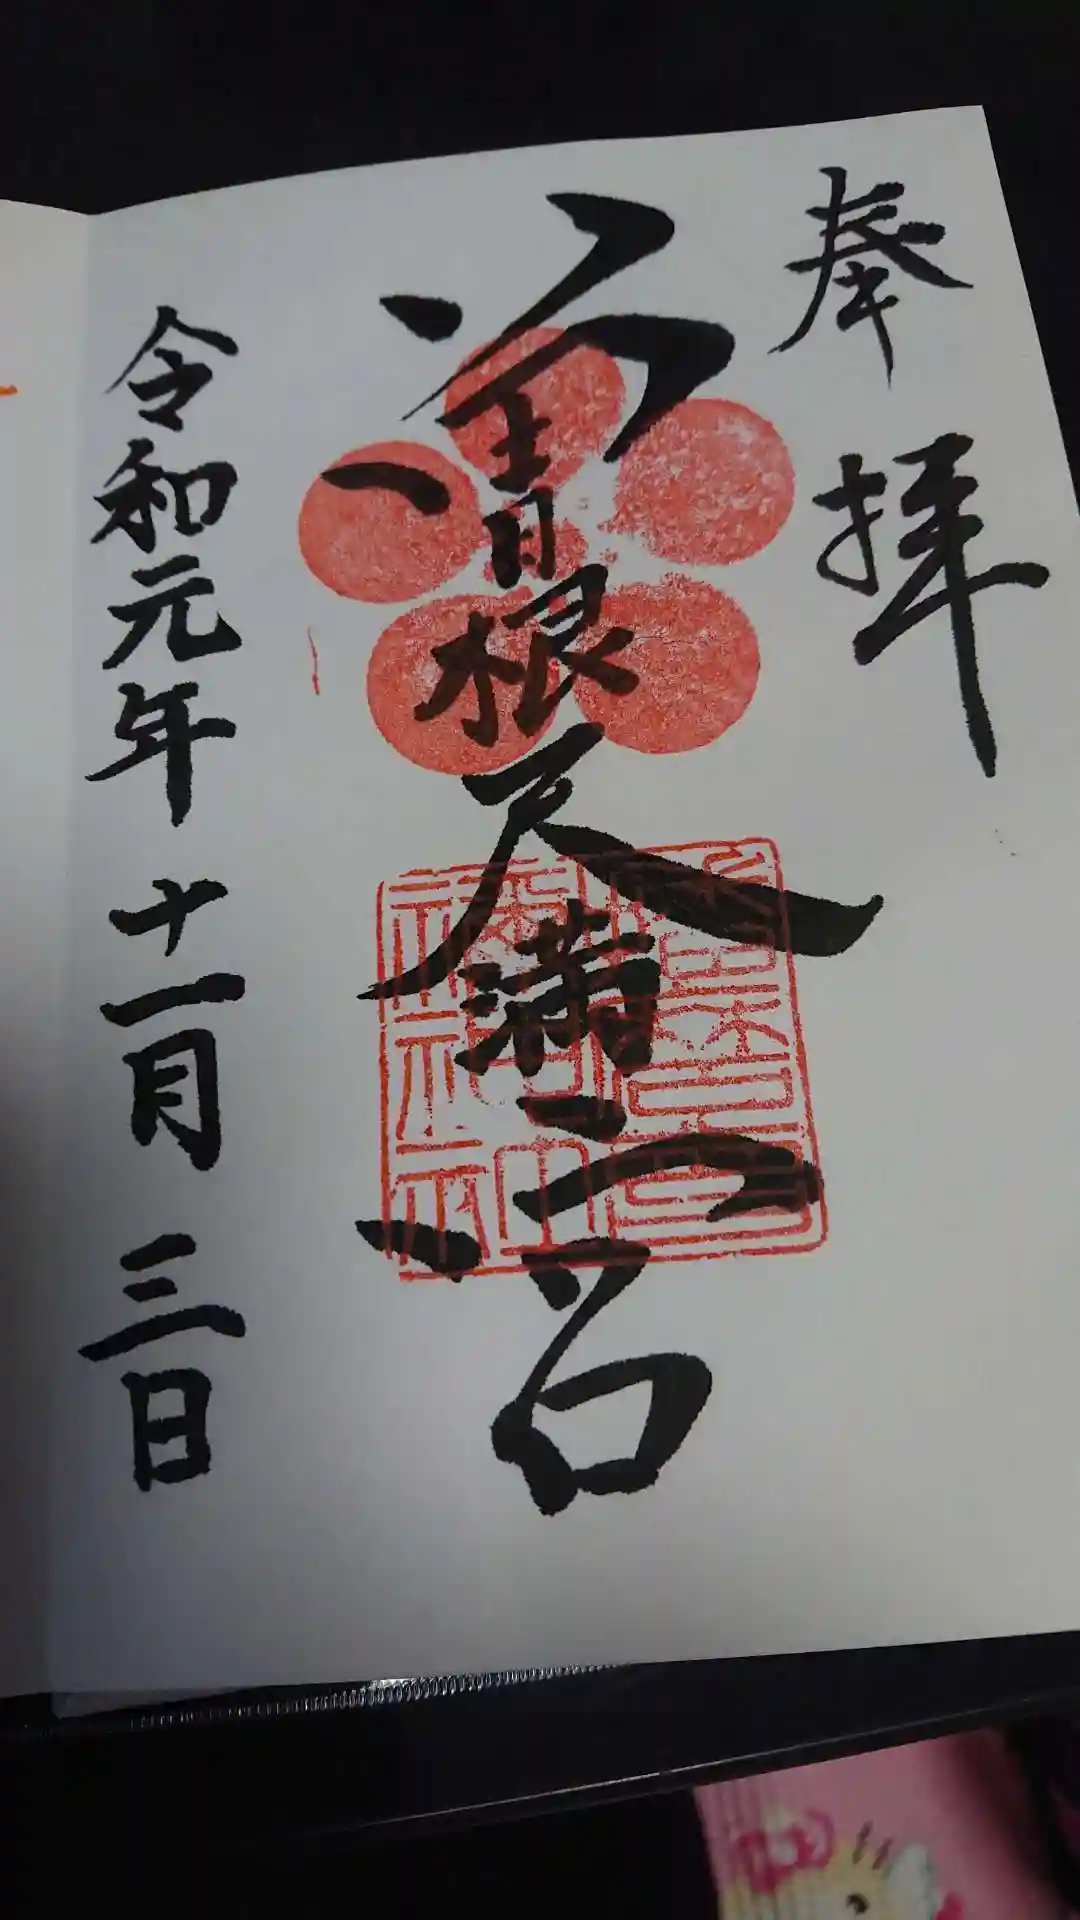 奉拝
根天満宮
令和元年十一月三日